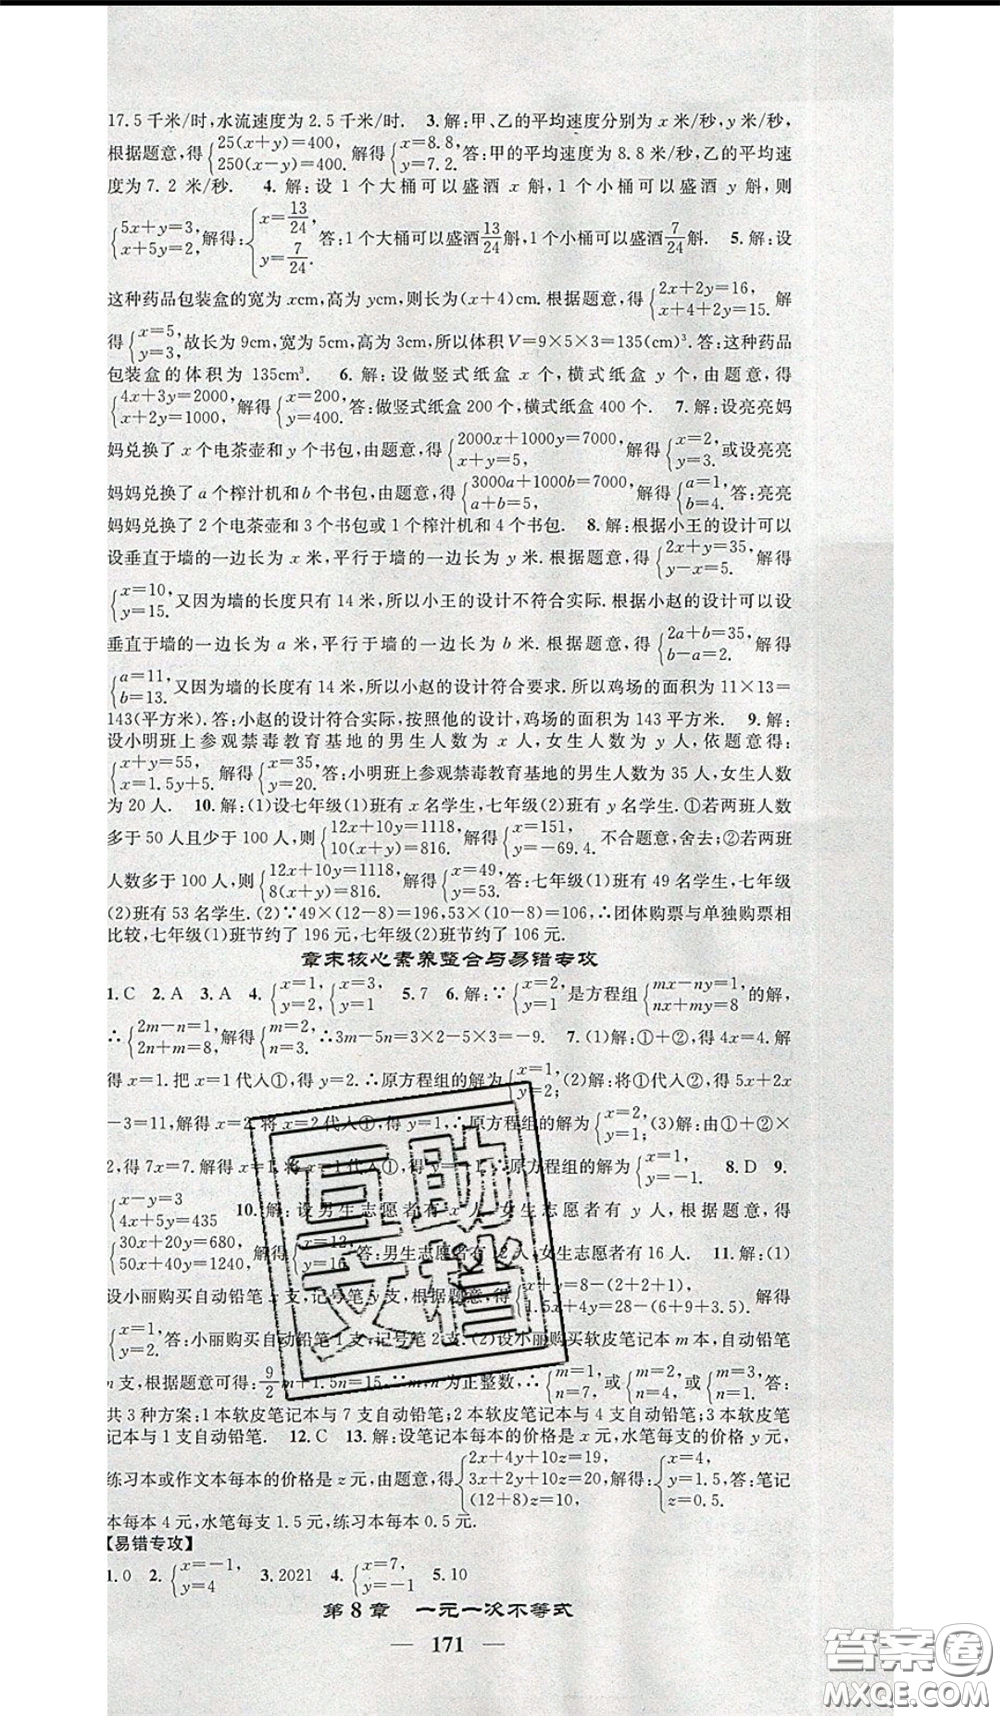 17.5千米/时,水流速度为2.5千米/时. 3.解:甲、乙的平均速度分别为x米/秒,y米/秒,
根据题意,得{25(x+y)=400, 250(x-y)=400. 解得{x=8.8, y=7.2. 答:甲的平均速度为8.8米/秒,乙的平均速
度为7.2米/秒. 4.解:设1个大桶可以盛酒x斛,1个小桶可以盛酒y斛,则
{5x+y=3, x+5y=2, 解得:{x=13/24, y=7/24. 答:1个大桶可以盛酒13/24斛,1个小桶可以盛酒7/24斛. 5.解:设
这种药品包装盒的宽为xcm,高为ycm,则长为(x+4)cm.根据题意,得{2x+2y=16, x+4+2y=15. 解
得{x=5, y=3, 故长为9cm,宽为5cm,高为3cm,所以体积V=9×5×3=135(cm)³.答:这种药品
包装盒的体积为135cm³. 6.解:设做竖式纸盒x个,横式纸盒y个,由题意,得
{4x+3y=2000, x+2y=1000, 解得{x=200, y=400. 答:做竖式纸盒200个,横式纸盒400个. 7.解:设亮亮妈
妈兑换了x个电茶壶和y个书包,由题意,得{2000x+1000y=7000, x+y=5, 解得{x=2, y=3. 或设亮亮
妈妈兑换了a个榨汁机和b个书包,由题意,得{3000a+1000b=7000, a+b=5, 解得{a=1, b=4. 答:亮亮
妈妈兑换了2个电茶壶和3个书包或1个榨汁机和4个书包. 8.解:根据小王的设计可以
设垂直于墙的一边长为x米,平行于墙的一边长为y米.根据题意,得{2x+y=35, y-x=5. 解得
{x=10, y=15. 又因为墙的长度只有14米,所以小王的设计不符合实际.根据小赵的设计可以设
垂直于墙的一边长为a米,平行于墙的一边长为b米.根据题意,得{2a+b=35, b-a=2. 解得
{a=11, b=13. 又因为墙的长度有14米,所以小赵的设计符合要求.所以鸡场的面积为11×13=
143(平方米).答:小赵的设计符合实际,按照他的设计,鸡场的面积为143平方米. 9.解:
设小明班上参观禁毒教育基地的男生人数为x人,女生人数为y人,依题意得:
{x+y=55, x=1.5y+5. 解得{x=35, y=20. 答:小明班上参观禁毒教育基地的男生人数为35人,女生人数
为20人. 10.解:(1)设七年级(1)班有x名学生,七年级(2)班有y名学生.①若两班人数
多于50人且少于100人,则{12x+10y=1118, 10(x+y)=816. 解得{x=151, y=-69.4. 不合题意,舍去;②若两班
人数多于100人,则{12x+10y=1118, 8(x+y)=816. 解得{x=49, y=53. 答:七年级(1)班有49名学生,七年级
(2)班有53名学生.(2)∵49×(12-8)=196,53×(10-8)=106,∴团体购票与单独购票相
比较,七年级(1)班节约了196元,七年级(2)班节约了106元.
章末核心素养整合与易错专攻
1.C 2.A 3.A 4.{x=1, y=2, {x=3, y=1 5.7 6.解:∵{x=2, y=1 是方程组{mx-ny=1, nx+my=8 的解,
∴{2m-n=1, 2n+m=8, 解得{m=2, n=3. ∴3m-5n=3×2-5×3=-9. 7.(1)解:①+②,得4x=4.解
得x=1.把x=1代入①,得y=2.∴原方程组的解为{x=1, y=2; (2)解:将①代入②,得5x+2x
-3=11,解得x=2.将x=2代入①,得y=1,∴原方程组的解为{x=2, y=1; (3)解:由①+②×
2,得7x=7.解得x=1,将x=1代入①,得y=-1,∴原方程组的解为{x=1, y=-1. 8.D 9.
{x-y=3 4x+5y=435 10.解:设男生志愿者有x人,女生志愿者有y人,根据题意,得
{30x+20y=680, 50x+40y=1240. 解得{x=12, y=16. 答:男生志愿者有12人,女生志愿者有16人. 11.解:(1)
设小丽购买自动铅笔x支,记号笔y支,根据题意,得{x+y=8-(2+2+1), 1.5x+4y=28-(6+9+5). 解得
{x=1, y=2. 答:小丽购买自动铅笔1支,记号笔2支.(2)设小丽购买软皮笔记本m本,自动铅笔
n支,根据题意可得:9/2m+1.5n=15,∵m,n为正整数,∴{m=1, n=7, 或{m=2, n=4, 或{m=3, n=1. 答:
共3种方案:1本软皮笔记本与7支自动铅笔;2本软皮笔记本与4支自动铅笔;3本软皮笔
记本与1支自动铅笔. 12.C 13.解:设笔记本每本的价格是x元,水笔每支的价格y元,
练习本或作文本每本的价格是z元,由题意,得{2x+4y+10z=19, 3x+2y+10z=20, (12+8)z=10, 解得:{x=4, y=1.5, z=0.5. 答:笔记
本每本4元,水笔每支1.5元,练习本每本0.5元.
【易错专攻】
1.0 2.{x=-1, y=4 3.2021 4.{x=7, y=-1 5.10
第8章 一元一次不等式
— 171 —
互助
文档
答案卷
MXQE.COM